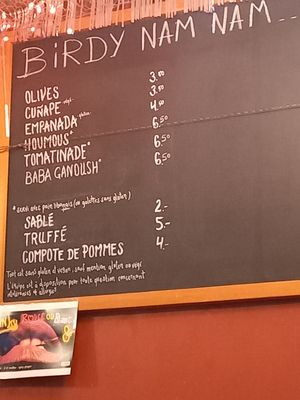 BIRDY NAM NAM
OLIVES 3.00
CUÑAPE végé. 3.50
EMPANADA gluten. 4.50
HOUMOUS* 6.50
TOMATINADE* 6.50
BABA GANOUSH* 6.50
* servi avec pain libanais (ou galettes sans gluten)
SABLÉ 2.-
TRUFFÉ 5.-
COMPOTE DE POMMES 4.-
Tout est sans gluten et vegan, sauf mention gluten ou végé.
L'équipe est à disposition pour toute question concernant
intolérances et allergies
8.-